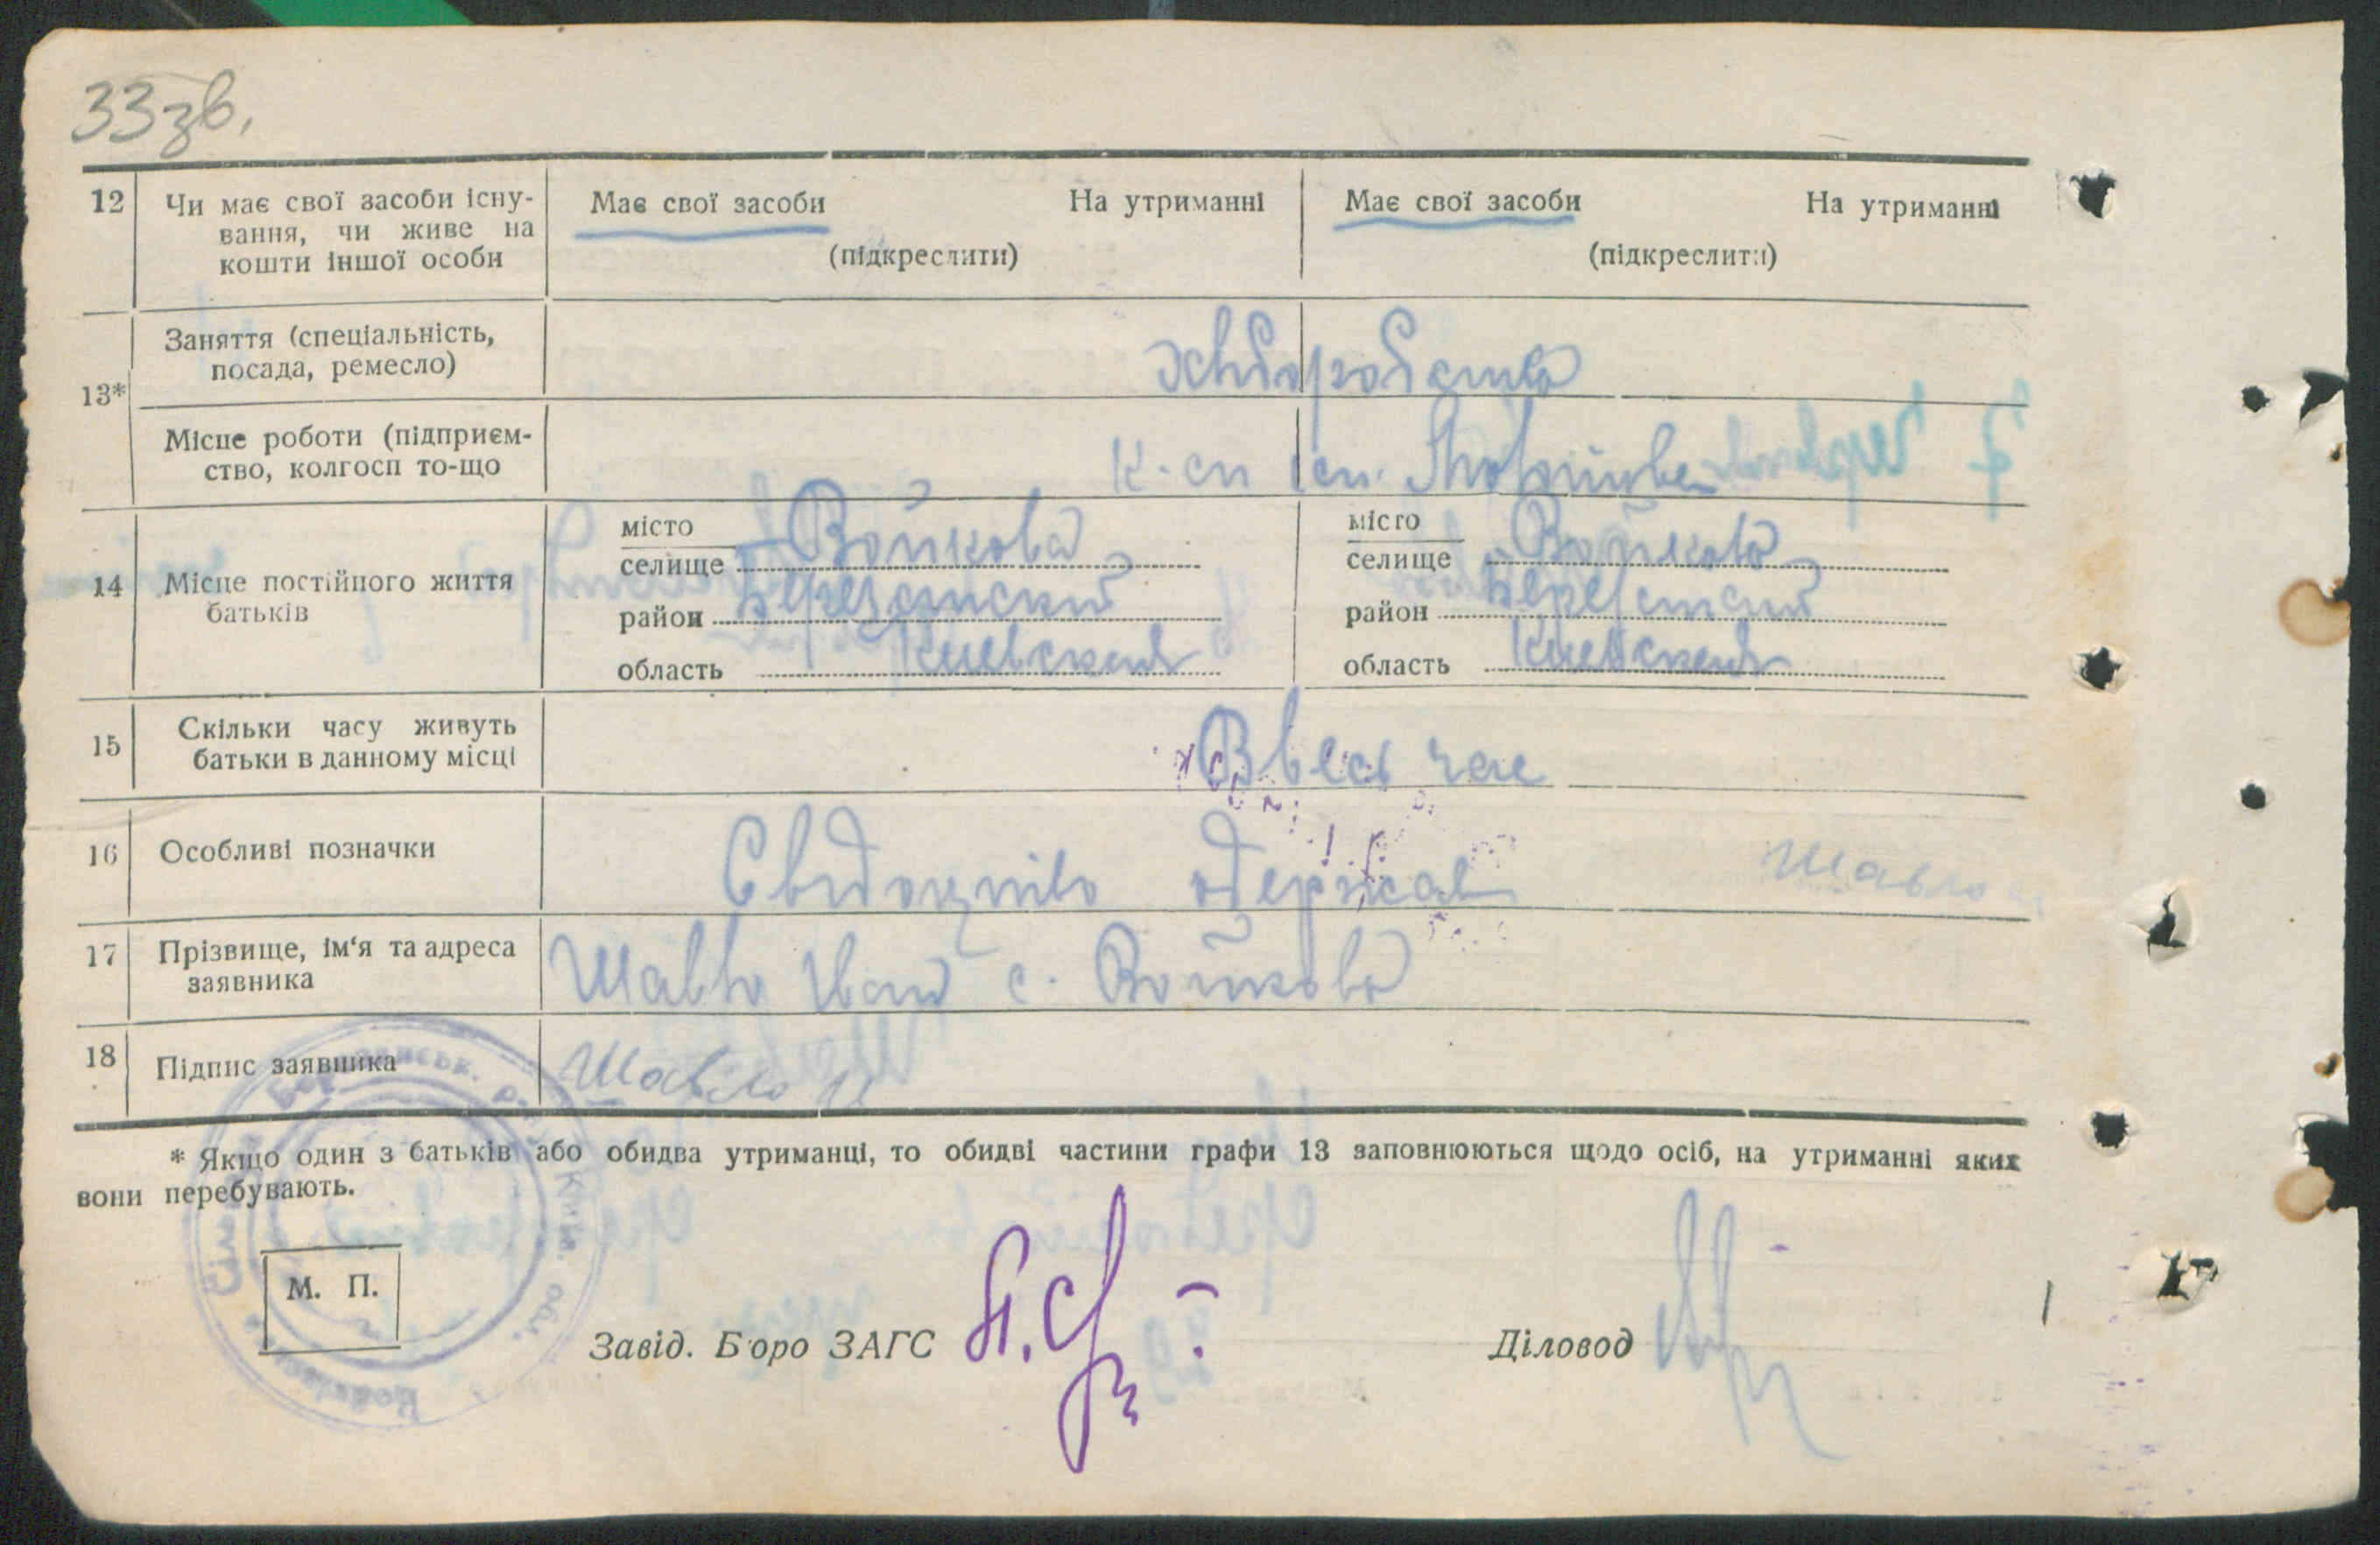 33зв.
12 Чи має свої засоби існу-
вання, чи живе на
кошти іншої особи
Має свої засоби На утриманні
(підкреслити)
Має свої засоби На утриманні
(підкреслити)
13*
Заняття (спеціальність,
посада, ремесло)
хліборобство
Місце роботи (підприєм-
ство, колгосп то-що
к-сп ім.
14 Місце постійного життя
батьків
місто
селище Войково
район Березанский
область Киевская
місто
селище Войково
район Березанский
область Киевская
15 Скільки часу живуть
батьки в данному місці
Ввесь час
16 Особливі позначки
Свидоцтво одержав Шавло
17 Прізвище, ім'я та адреса
заявника
Шавло Іван с. Войково
18 Підпис заявника
Шавло И
* Якщо один з батьків або обидва утриманці, то обидві частини графи 13 заповнюються щодо осіб, на утриманні яких
вони перебувають.
М. П.
Завід. Бюро ЗАГС
Діловод